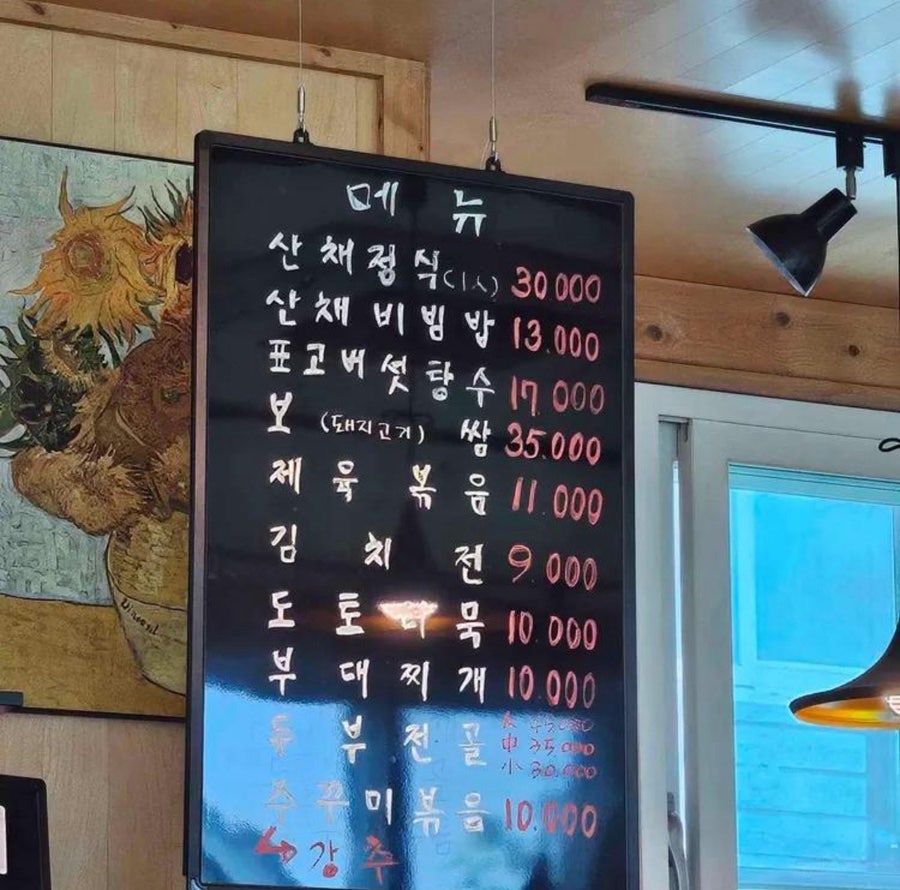 메뉴
산채정식(1人) 30.000
산채비빔밥 13.000
표고버섯탕수 17.000
보(돼지고기)쌈 35.000
제육볶음 11.000
김치전 9.000
도토리묵 10.000
부대찌개 10.000
두부전골 大 45.000
中 35.000
小 30.000
주꾸미볶음 10.000
↳ 강추
Vincent